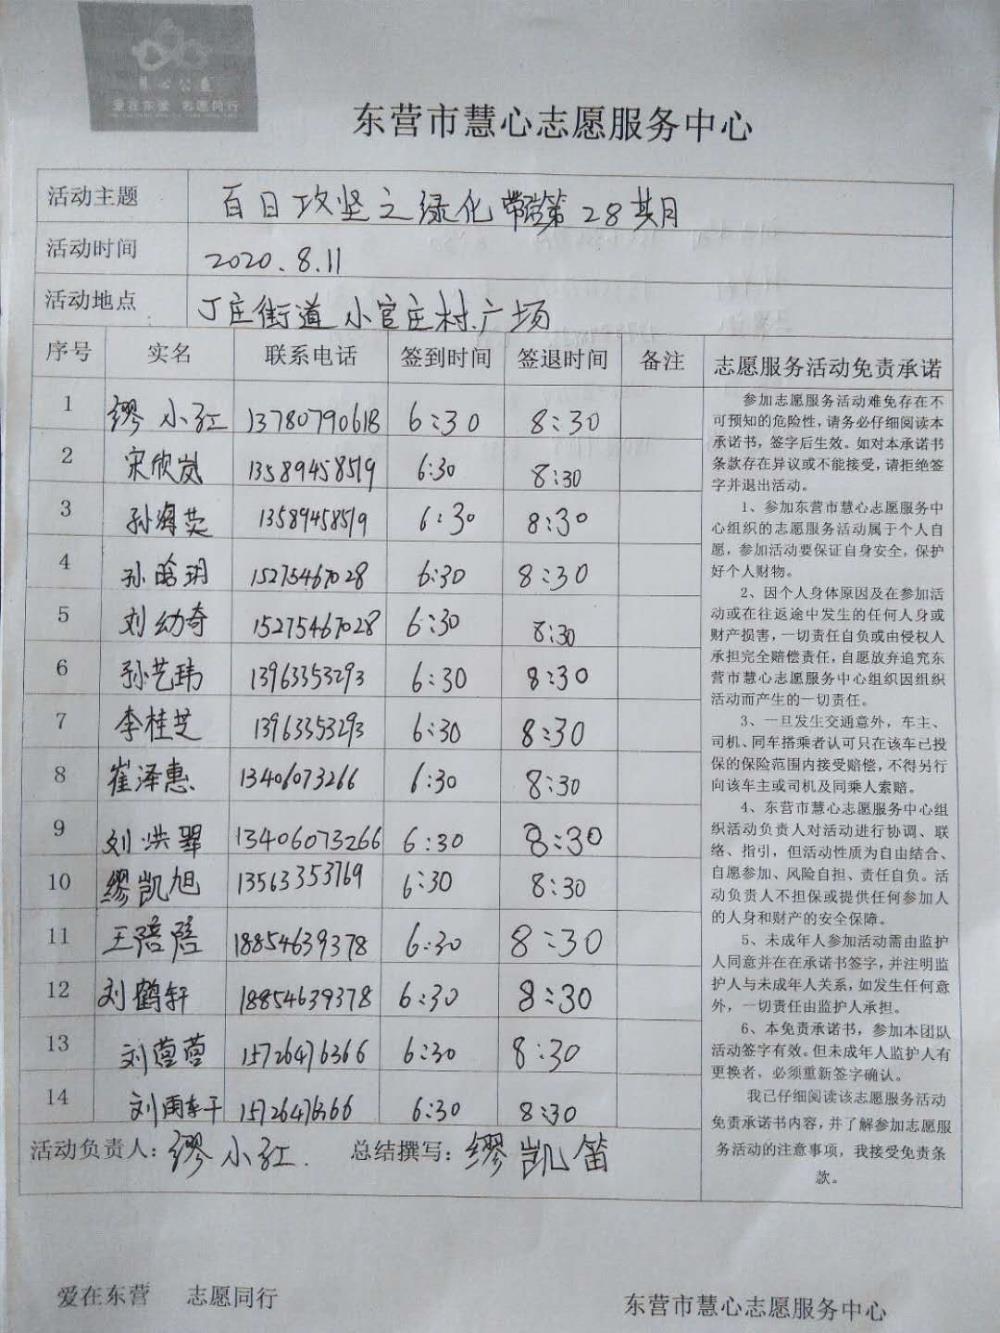 慧心公益
爱在东营 志愿同行
东营市慧心志愿服务中心
活动主题 百日攻坚之绿化带第28期
活动时间 2020.8.11
活动地点 丁庄街道小官庄村广场
序号 实名 联系电话 签到时间 签退时间 备注
1 缪小红 13780790618 6:30 8:30
2 宋欣岚 13589458519 6:30 8:30
3 孙海英 13589458519 6:30 8:30
4 孙晗玥 15275467028 6:30 8:30
5 刘幼奇 15275467028 6:30 8:30
6 孙艺玮 13963353293 6:30 8:30
7 李桂芝 13963353293 6:30 8:30
8 崔泽惠 13406073266 6:30 8:30
9 刘洪翠 13406073266 6:30 8:30
10 缪凯旭 13563353769 6:30 8:30
11 王陪陪 18854639378 6:30 8:30
12 刘鹤轩 18854639378 6:30 8:30
13 刘蓉蓉 15726476366 6:30 8:30
14 刘雨 15726476366 6:30 8:30
活动负责人：缪小红. 总结撰写：缪凯笛
志愿服务活动免责承诺
参加志愿服务活动难免存在不
可预知的危险性，请务必仔细阅读本
承诺书，签字后生效。如对本承诺书
条款存在异议或不能接受，请拒绝签
字并退出活动。
1、参加东营市慧心志愿服务中
心组织的志愿服务活动属于个人自
愿，参加活动要保证自身安全，保护
好个人财物。
2、因个人身体原因及在参加活
动或在往返途中发生的任何人身或
财产损害，一切责任自负或由侵权人
承担完全赔偿责任，自愿放弃追究东
营市慧心志愿服务中心组织因组织
活动而产生的一切责任。
3、一旦发生交通意外，车主、
司机、同车搭乘者认可只在该车已投
保的保险范围内接受赔偿，不得另行
向该车主或司机及同乘人索赔。
4、东营市慧心志愿服务中心组
织活动负责人对活动进行协调、联
络、指引，但活动性质为自由结合、
自愿参加、风险自担、责任自负。活
动负责人不担保或提供任何参加人
的人身和财产的安全保障。
5、未成年人参加活动需由监护
人同意并在在承诺书签字，并注明监
护人与未成年人关系，如发生任何意
外，一切责任由监护人承担。
6、本免责承诺书，参加本团队
活动签字有效。但未成年人监护人有
更换者，必须重新签字确认。
我已仔细阅读该志愿服务活动
免责承诺书内容，并了解参加志愿服
务活动的注意事项，我接受免责条
款。
爱在东营 志愿同行
东营市慧心志愿服务中心